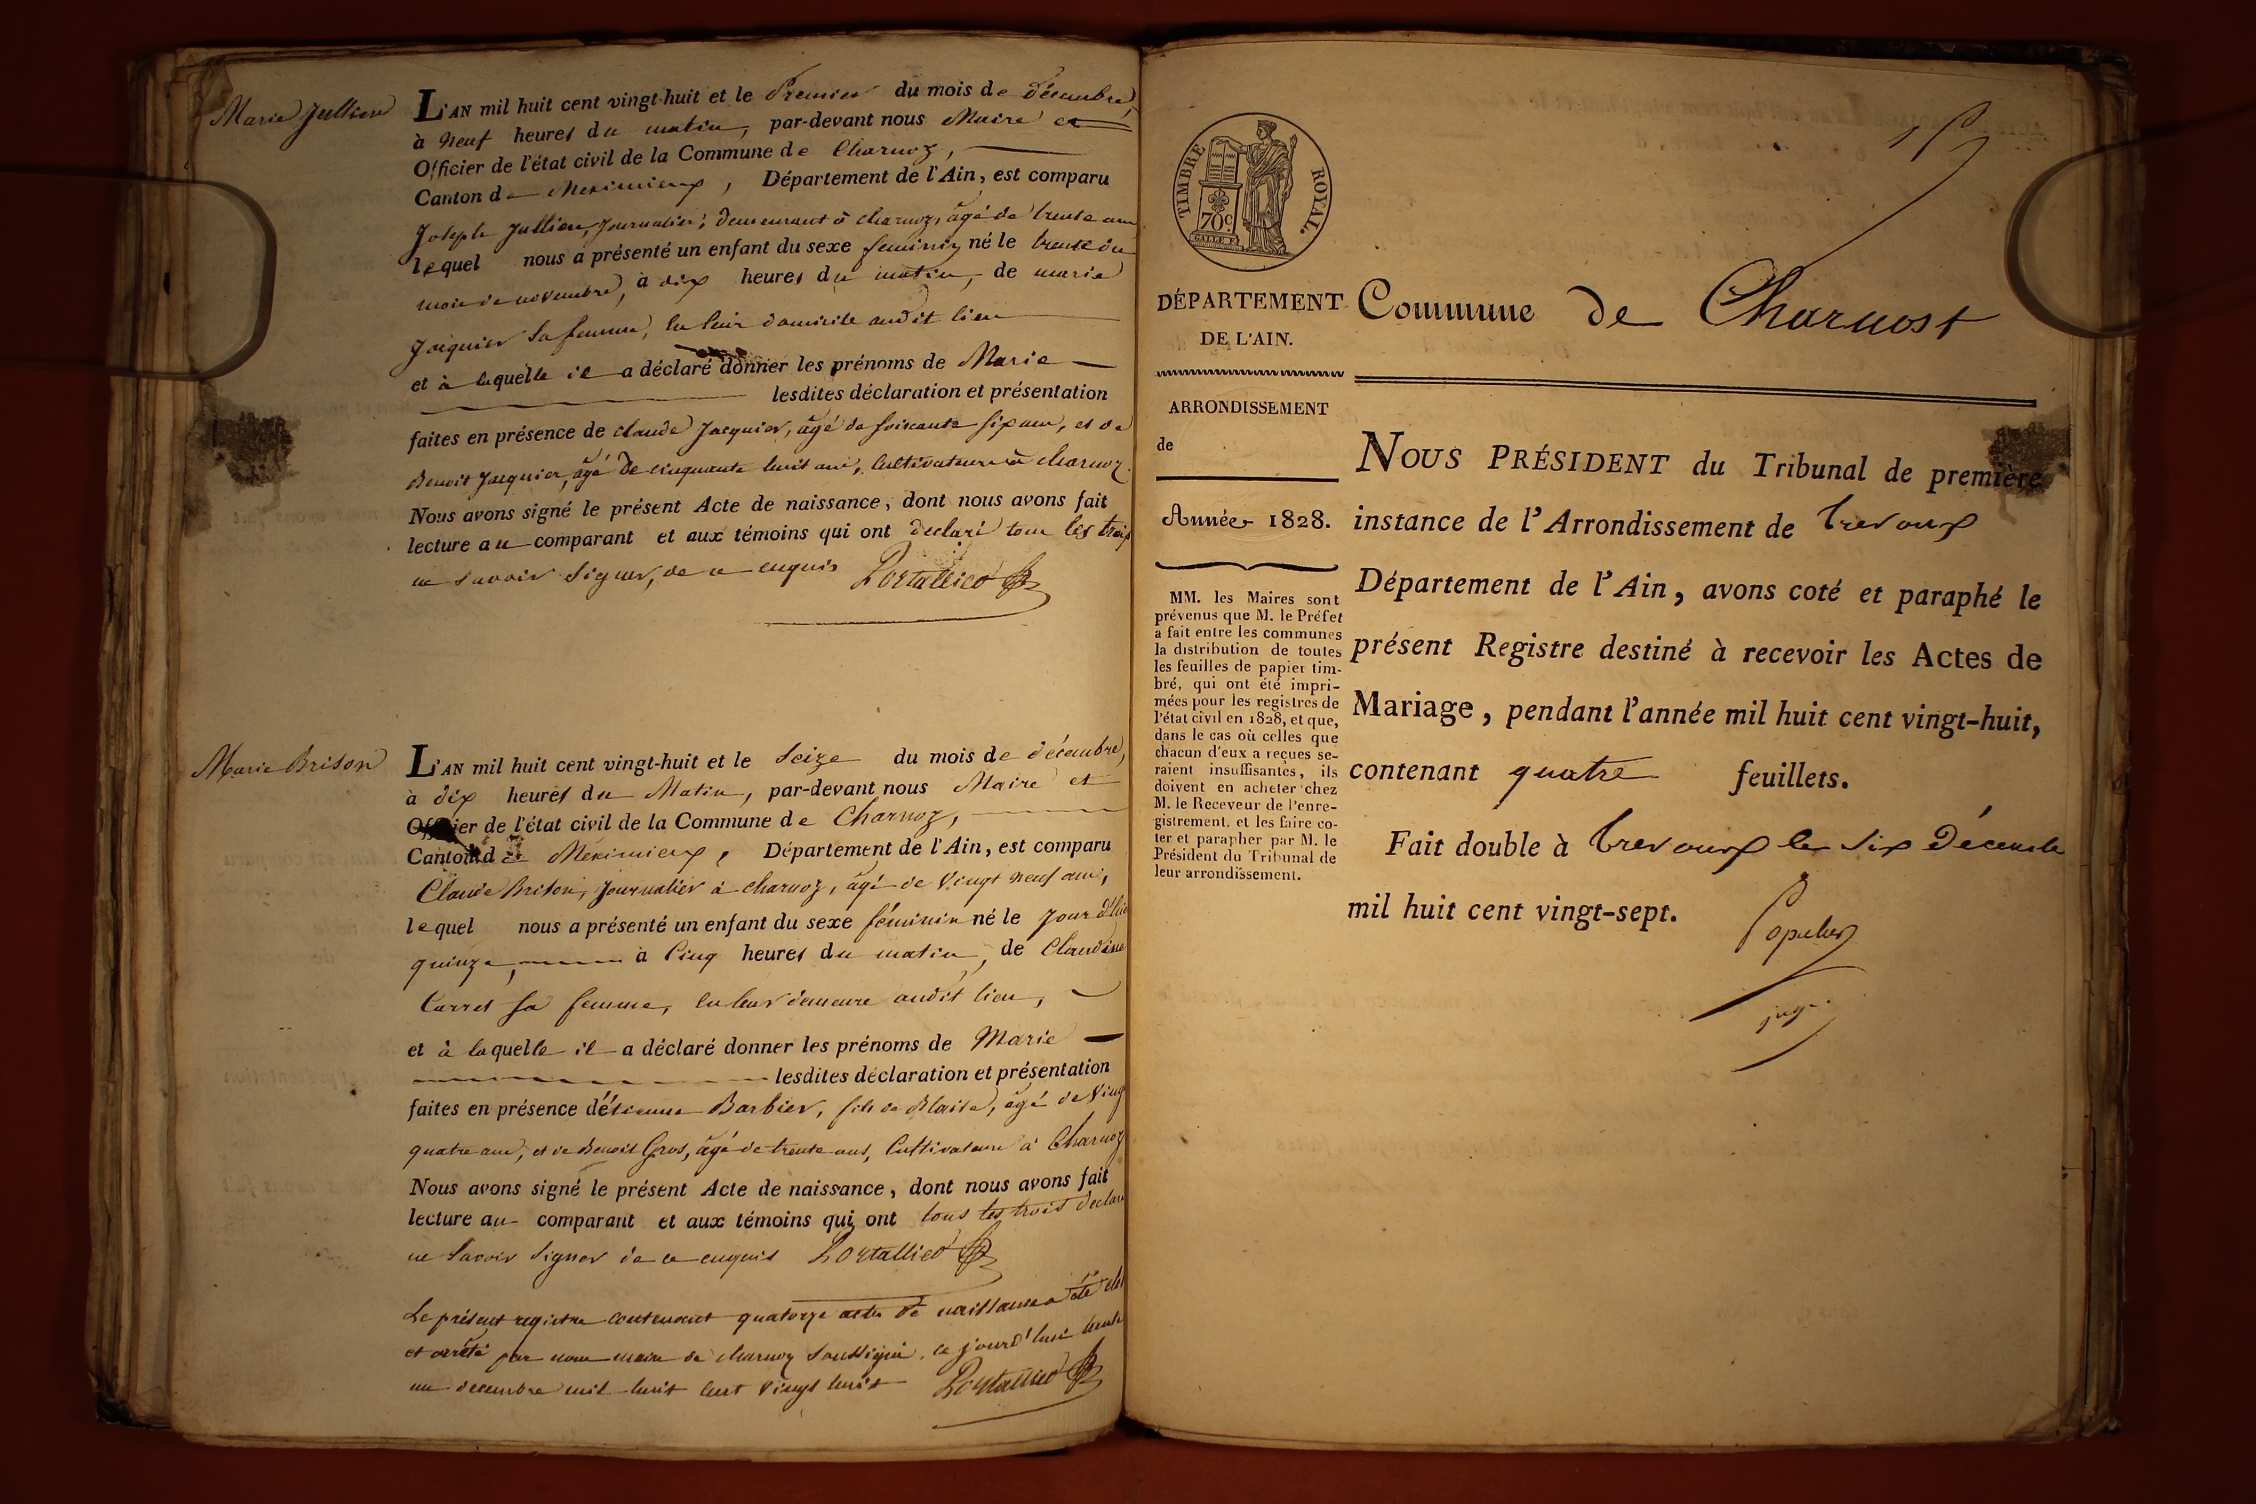 Marie Jullien
L'AN mil huit cent vingt-huit et le Premier du mois de décembre,
à neuf heures du matin, par-devant nous Maire et
Officier de l'état civil de la Commune de Charnoz,
Canton de Meximieux, Département de l'Ain, est comparu
Joseph Jullien, journalier, demeurant à charnoz, âgé de trente ans
lequel nous a présenté un enfant du sexe feminin né le trente du
mois de novembre, à dix heures du matin, de marie
Jacquier sa femme, en leur domicile audit lieu
et à laquelle il a déclaré donner les prénoms de Marie
lesdites déclaration et présentation
faites en présence de claude Jacquier, âgé de soixante six ans, et de
Benoit Jacquier, âgé de cinquante huit ans, cultivateurs à charnoz.
Nous avons signé le présent Acte de naissance, dont nous avons fait
lecture au comparant et aux témoins qui ont declaré tous les trois
ne savoir signer, de ce enquis Portallier
Marie Brison
L'AN mil huit cent vingt-huit et le Seize du mois de décembre,
à dix heures du Matin, par-devant nous Maire et
Officier de l'état civil de la Commune de Charnoz,
Canton de Meximieux, Département de l'Ain, est comparu
Claude Brison, journalier à charnoz, âgé de vingt neuf ans,
lequel nous a présenté un enfant du sexe féminin né le jour d'hier
quinze, à cinq heures du matin, de Claudine
Carret sa femme, en leur demeure audit lieu,
et à laquelle il a déclaré donner les prénoms de Marie
lesdites déclaration et présentation
faites en présence d'étienne Barbier, fils de Blaise, âgé de vingt
quatre ans, et de Benoit Gros, âgé de trente ans, Cultivateurs à Charnoz
Nous avons signé le présent Acte de naissance, dont nous avons fait
lecture au comparant et aux témoins qui ont tous les trois declaré
ne savoir signer de ce enquis Portallier
Le présent registre contenant quatorze actes de naissance a été clos
et arrêté par nous maire de charnoz soussigné, ce jourd'hui trente
un decembre mil huit cent vingt huit Portallier
TIMBRE ROYAL.
70c.
DÉPARTEMENT
DE L'AIN.
ARRONDISSEMENT
de
Année 1828.
MM. les Maires sont
prévenus que M. le Préfet
a fait entre les communes
la distribution de toutes
les feuilles de papier tim-
bré, qui ont été impri-
mées pour les registres de
l'état civil en 1828, et que,
dans le cas où celles que
chacun d'eux a reçues se-
raient insuffisantes, ils
doivent en acheter chez
M. le Receveur de l'enre-
gistrement, et les faire co-
ter et parapher par M. le
Président du Tribunal de
leur arrondissement.
Commune de Charnost
NOUS PRÉSIDENT du Tribunal de première
instance de l'Arrondissement de Trevoux
Département de l'Ain, avons coté et paraphé le
présent Registre destiné à recevoir les Actes de
Mariage, pendant l'année mil huit cent vingt-huit,
contenant quatre feuillets.
Fait double à Trevoux le six Décembre
mil huit cent vingt-sept.
juge